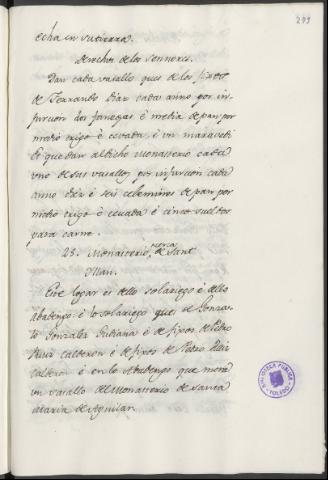 299
echa en su tierra.
Derechos de los sennores.
Dan cada vasallo ques de los fixos
de Ferrando Diaz cada anno por in-
furcion dos fanegas è media de pan por
medio trigo è cevada, è un maravedi
è que dan al dicho Monasterio cada
uno de sus vasallos por infurcion cada
anno diez è seis celemines de pan por
medio trigo è cevada è cinco sueldos
para carne.
23. Monasterio cerca de Sant
Illan.
Este logar es dello solariego è dello
Abadengo è lo solariego ques de Gonza-
lo Gonzalez Gudiana è de fixos de Pedro
Ruiz Calderon è de fixos de Pedro Ruiz
Calderon è en lo Abadengo que mora
un vasallo del Monasterio de Santa
Maria de Aguilar.
BIBLIOTECA PÚBLICA
TOLEDO